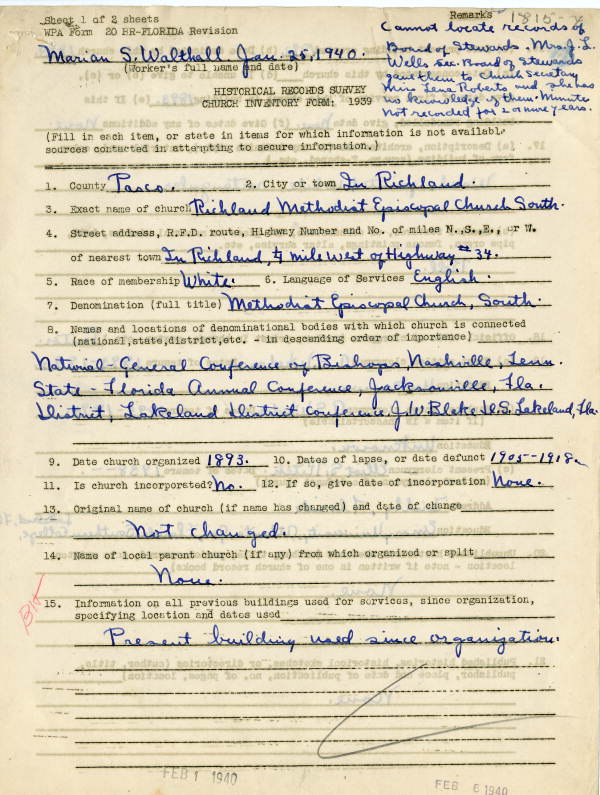 Sheet 1 of 2 sheets
WPA Form 20 HR-FLORIDA Revision
Remarks
Cannot locate records of
Board of Stewards. Mrs. J. L.
Wells Sec. Board of Stewards
gave them to Church Secretary
Miss Lena Roberts and she has
no knowledge of them. Minutes
not recorded for 2 or more years.
Marian S. Walthall Jan. 25, 1940.
(Worker's full name and date)
HISTORICAL RECORDS SURVEY
CHURCH INVENTORY FORM: 1939
(Fill in each item, or state in items for which information is not available
sources contacted in attempting to secure information.)
1. County Pasco. 2. City or town In Richland.
3. Exact name of church Richland Methodist Episcopal Church South.
4. Street address, R.F.D. route, Highway Number and No. of miles N.,S.,E., or W.
of nearest town In Richland, ¼ mile West of Highway #34.
5. Race of membership White. 6. Language of Services English.
7. Denomination (full title) Methodist Episcopal Church, South.
8. Names and locations of denominational bodies with which church is connected
(national,state,district,etc. - in descending order of importance)
National-General Conference of Bishops, Nashville, Tenn.
State - Florida Annual Conference, Jacksonville, Fla.
District, Lakeland District Conference J.W. Blake D.S. Lakeland, Fla.
9. Date church organized 1893. 10. Dates of lapse, or date defunct 1905--1918.
11. Is church incorporated? No. 12. If so, give date of incorporation None.
13. Original name of church (if name has changed) and date of change
Not changed.
14. Name of local parent church (if any) from which organized or split
None.
15. Information on all previous buildings used for services, since organization,
specifying location and dates used
Present building used since organization.
FEB 1 1940
FEB 6 1940